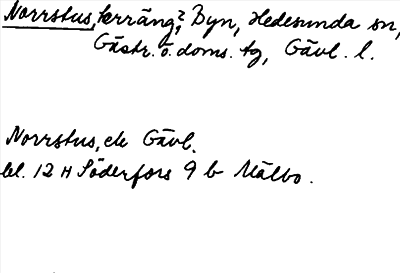 Norrstus, terräng?, Byn, Hedesunda sn,
Gästr. ö. doms. tg, Gävl. l.
Norrstus, ek Gävl.
bl. 12 H Söderfors 9 b Mälbo.